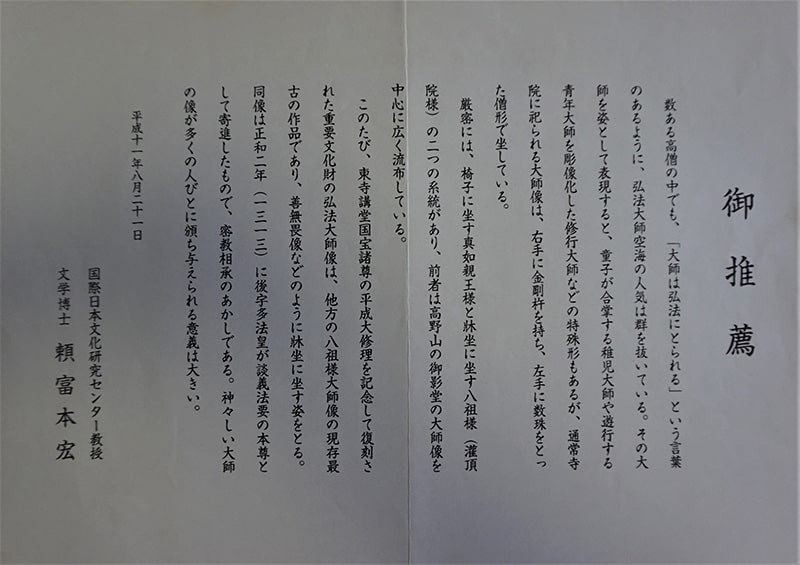 御推薦
数ある高僧の中でも、「大師は弘法にとられる」という言葉
のあるように、弘法大師空海の人気は群を抜いている。その大
師を姿として表現すると、童子が合掌する稚児大師や遊行する
青年大師を彫像化した修行大師などの特殊形もあるが、通常寺
院に祀られる大師像は、右手に金剛杵を持ち、左手に数珠をとっ
た僧形で坐している。
厳密には、椅子に坐す真如親王様と牀坐に坐す八祖様（灌頂
院様）の二つの系統があり、前者は高野山の御影堂の大師像を
中心に広く流布している。
このたび、東寺講堂国宝諸尊の平成大修理を記念して復刻さ
れた重要文化財の弘法大師像は、他方の八祖様大師像の現存最
古の作品であり、善無畏像などのように牀坐に坐す姿をとる。
同像は正和二年（一三一三）に後宇多法皇が談義法要の本尊と
して寄進したもので、密教相承のあかしである。神々しい大師
の像が多くの人びとに頒ち与えられる意義は大きい。
平成十一年八月二十一日
国際日本文化研究センター教授
文学博士 頼富本宏